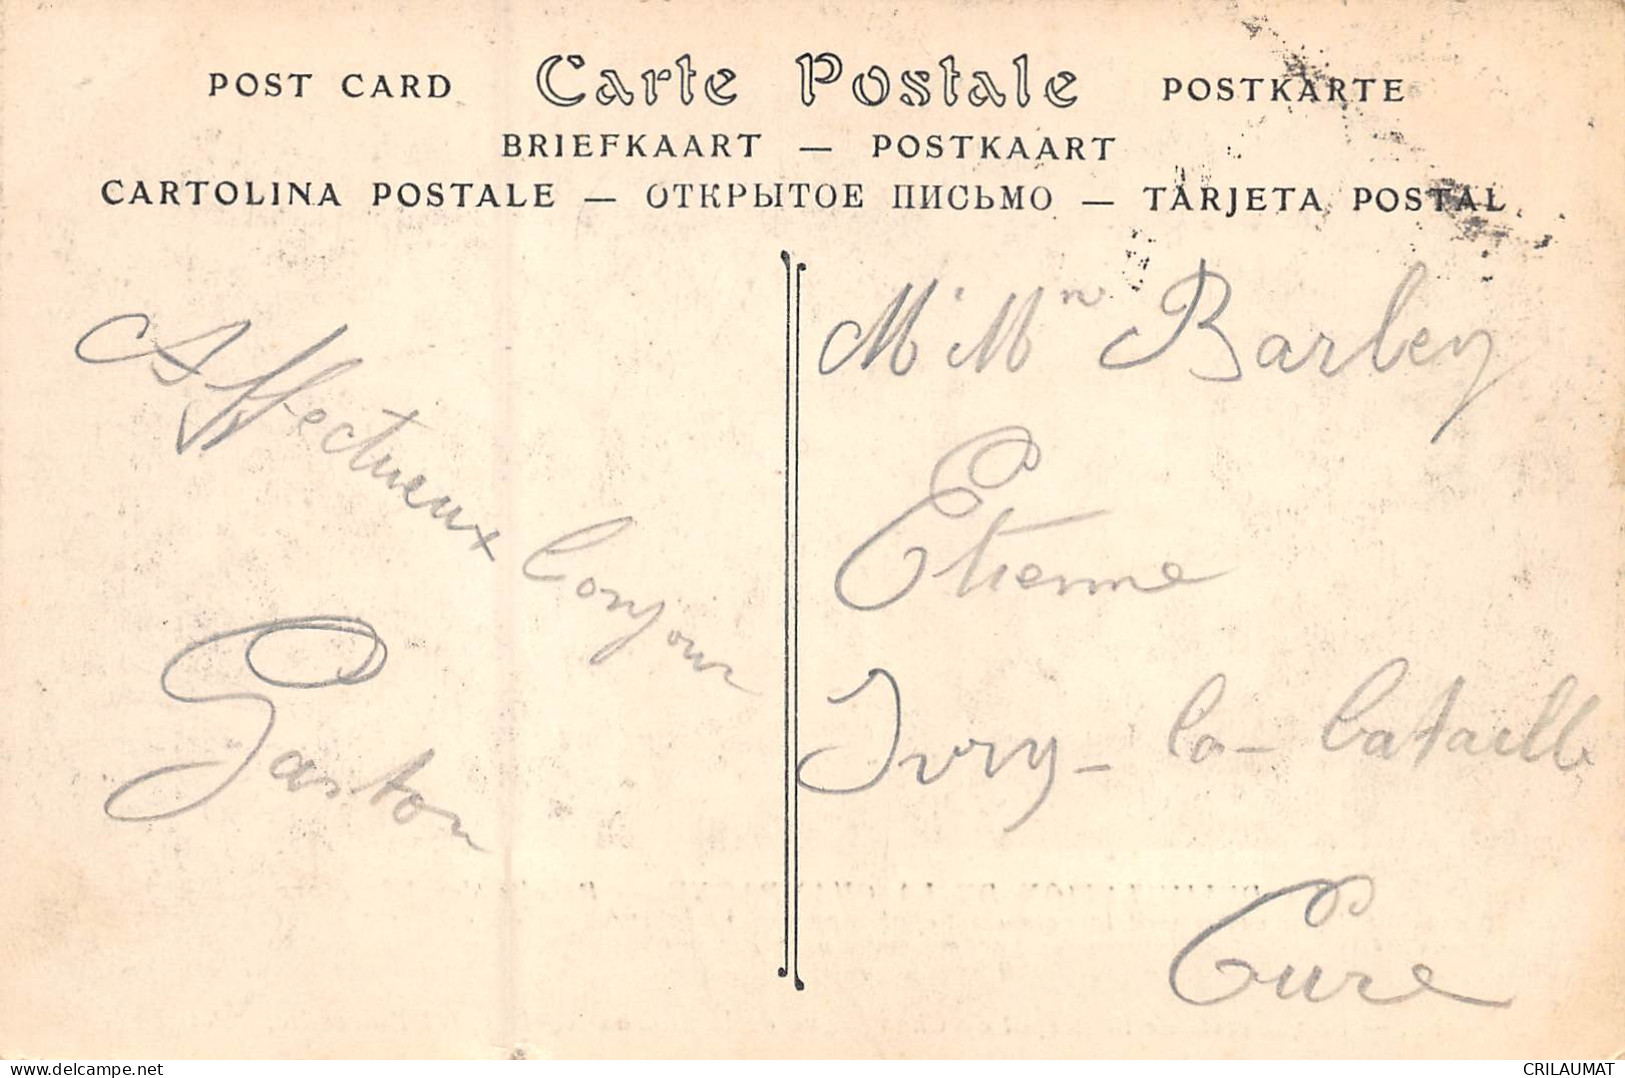 POST CARD Carte Postale POSTKARTE
BRIEFKAART — POSTKAART
CARTOLINA POSTALE — ОТКРЫТОЕ ПИСЬМО — TARJETA POSTAL
Affectueux bonjour
Gaston
Barley
Etienne
Ivry-la-bataille
Eure
delcampe.net
CRILAUMAT